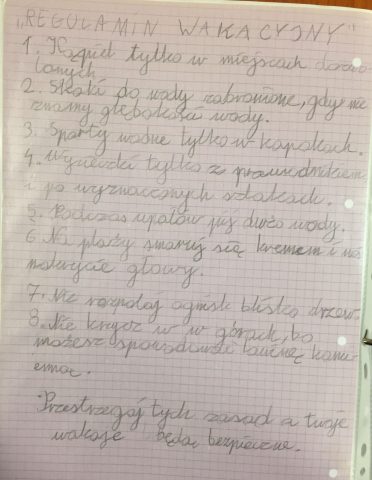 „REGULAMIN WAKACYJNY"
1. Kąpiel tylko w miejscach dozwo-
lonych.
2. Skoki do wody zabronione, gdy nie
znamy głębokości wody.
3. Sporty wodne tylko w kapokach.
4. Wycieczki tylko z przewodnikiem
i po wyznaczonych szlakach.
5. Podczas upałów pij dużo wody.
6. Na plaży smaruj się kremem i noś
nakrycie głowy.
7. Nie rozpalaj ognisk blisko drzew.
8. Nie krzycz w w górach, bo
możesz spowodować lawinę kami-
enną.
Przestrzegaj tych zasad a twoje
wakacje będą bezpieczne.